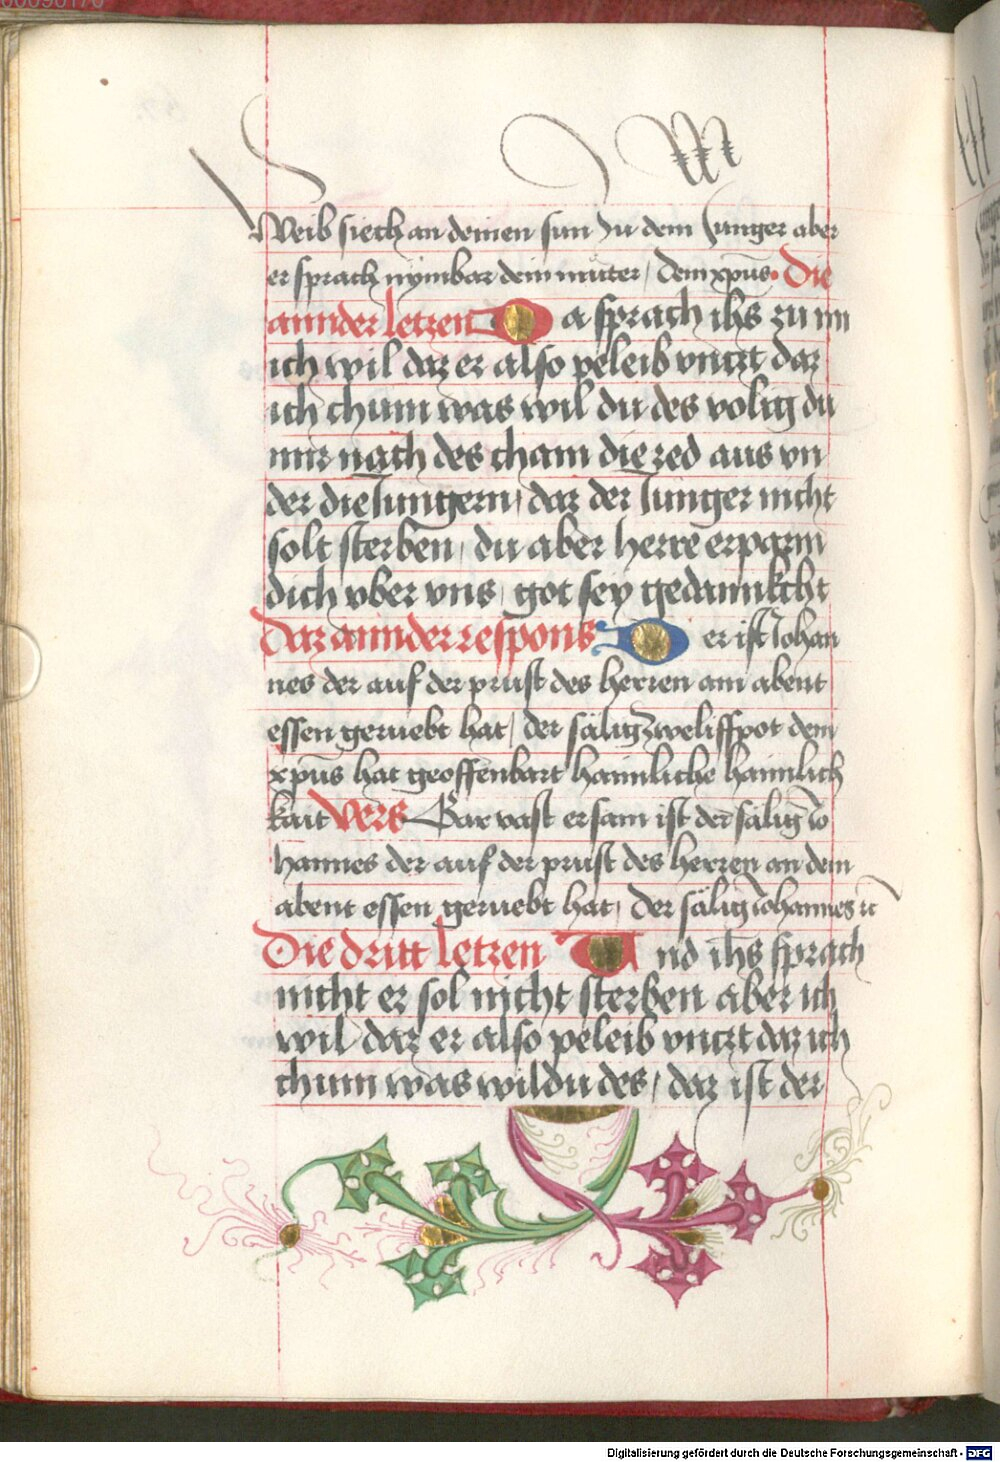 Weib siech an deinen sun Zu dem Junger aber
er sprach nymbar dein muter / dem xpūs · Die
annder letzen Da sprach ihs zu im
ich wil daz er also peleib vnczt daz
ich chum was wil du des volig du
mir nach des cham die red aus vn
der die Jungern / daz der Junger nicht
solt sterben / du aber herre erparm
dich vber vns / got sey gedannkcht
Daz annder respons Der ist Johan
nes der auf der prust des herren am abent
essen geruebt hat / der sälig Zweliffpot dem
xpūs hat geoffenbart haimliche haimlich
kait Vers Gar vast ersam ist der sälig Jo
hannes der auf der prust des herren an dem
abent essen geruebt hat / Der sälig Johannes
Die dritt letzen Und ihs sprach
nicht er sol nicht sterben aber ich
wil daz er also peleib vnczt daz ich
chum was wil du des / daz ist der
Digitalisierung gefördert durch die Deutsche Forschungsgemeinschaft - DFG